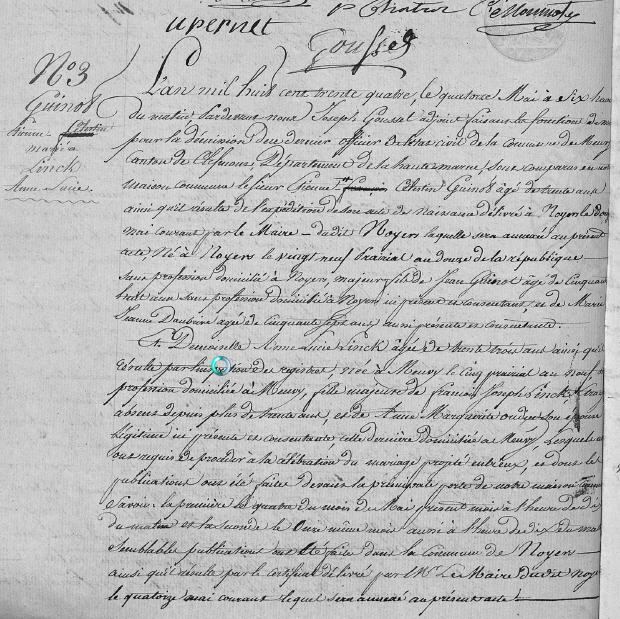 upernet
Gousset
N° 3
Guinot
Etienne Celestin
marié à
Linck
Anne Lucie.
L'an mil huit cent trente quatre, le quatorze Mai à six heures
du matin Pardevant nous Joseph Gousset adjoint faisant la fonction de
pour la démission du dernier officier de l'état civil de la Commune de Meuvy
Canton de Clefmont Département de la haute marne, sont comparus en notre
maison commune le sieur Etienne françois Celestin Guinot âgé de trente ans
ainsi qu'il résulte de l'expédition de son acte de naissance délivré à Noyers le douze
mai courant par le Maire dudit Noyers laquelle sera annexée au présent
acte, Né à Noyers le vingt neuf Prairial an douze de la république
sans profession domicilié à Noyers, majeur fils de Jean Guinot âgé de cinquante
huit ans sans profession domicilié à Noyers ici présent et consentant, et de Marie
Jeanne âgée de cinquante sept ans aussi présente et consentante.
Et Demoiselle Anne Lucie Linck âgée de trente trois ans ainsi qu'il
résulte par l'inspection des registres, née à Meuvy le cinq prairial an neuf
profession domiciliée à Meuvy, fille majeure de François Joseph Linck
absent depuis plus de trente ans, et de Anne Marguerite son épouse
légitime ici présente et consentante, cette dernière domiciliée à Meuvy, Lesquels
ont requis de procéder à la célébration du mariage projeté entre eux, et dont les
publications ont été faites devant la principale porte de notre maison commune
Savoir: la première le quatre du mois de Mai présent mois à l'heure de dix
du matin et la seconde le Onze même mois aussi à l'heure de dix du matin
Semblables publications ont été faites dans la Commune de Noyers
ainsi qu'il résulte par le certificat délivré par Mr Le Maire dudit Noyers
le quatorze mai courant lequel sera annexé au présent acte.